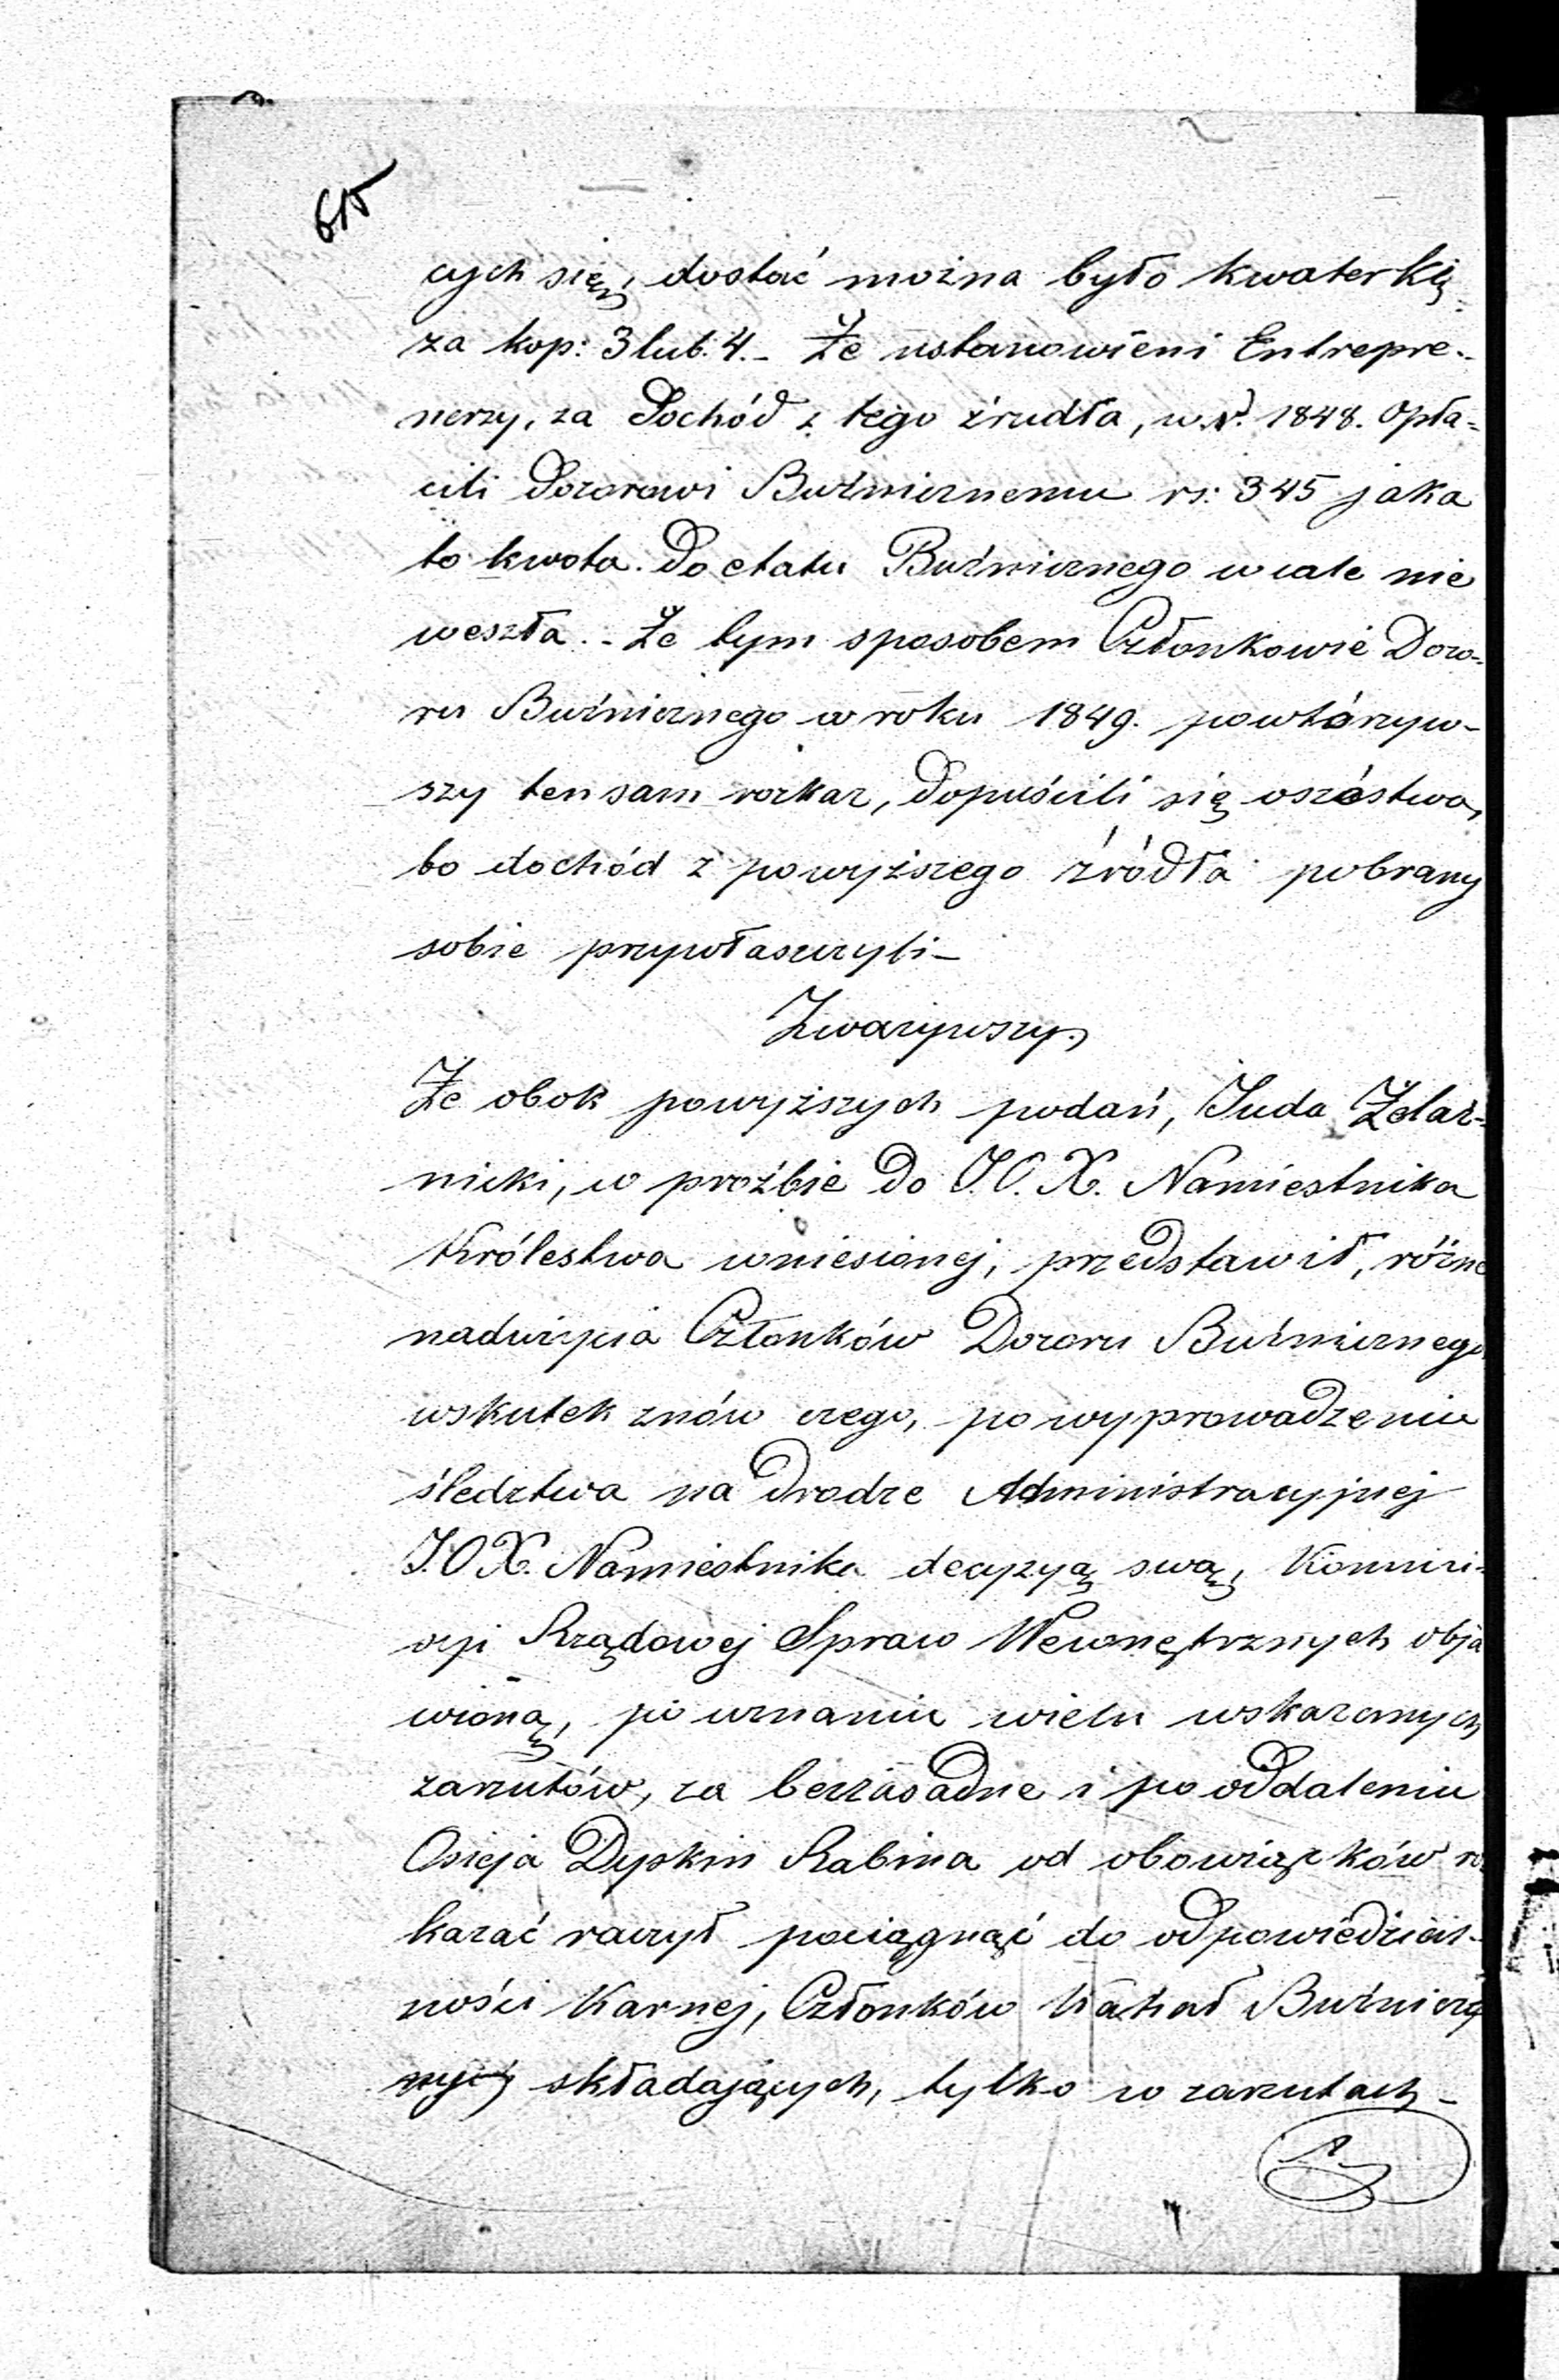 615
cych się, dostać można było kwaterkę
za kop: 3 lub. 4. – Że ustanowieni Entrepre-
nerzy, za Dochód z tego źrudła, w r. 1848. Opła-
cili Dozorowi Bużnicznemu rs: 345 jaka
to kwota. Do etatu Bużnicznego wcale nie
weszła. – Że tym sposobem Członkowie Dozo-
ru Bużnicznego w roku 1849. powtórzyw-
szy ten sam rozkaz, Dopuścili się oszóstwa,
bo dochód z powyższego źródła pobrany
sobie przywłaszczyli –
Zważywszy,
Że obok powyższych podań, Juda Żelaź-
nicki, w proźbie Do J.O.X. Namiestnika
Królestwa wniesionej, przedstawił, różne
nadużycia Członków Dozoru Bużnicznego
wskutek znów czego, po wyprowadzeniu
śledztwa na Drodze Administracyjnej
J.O.X. Namiestnika decyzyą swą, Kommis-
syi Rządowej Spraw Wewnętrznych obja
wioną, po uznaniu wielu wskazanych
zarzutów, za bezzasadne i po oddaleniu
Osieja Dyskin Rabina od obowiązków
kazać raczył pociągnąć do odpowiedzial-
ności Karnej, Członków Kahał Bużnicz
nych składających, tylko w zarzutach –